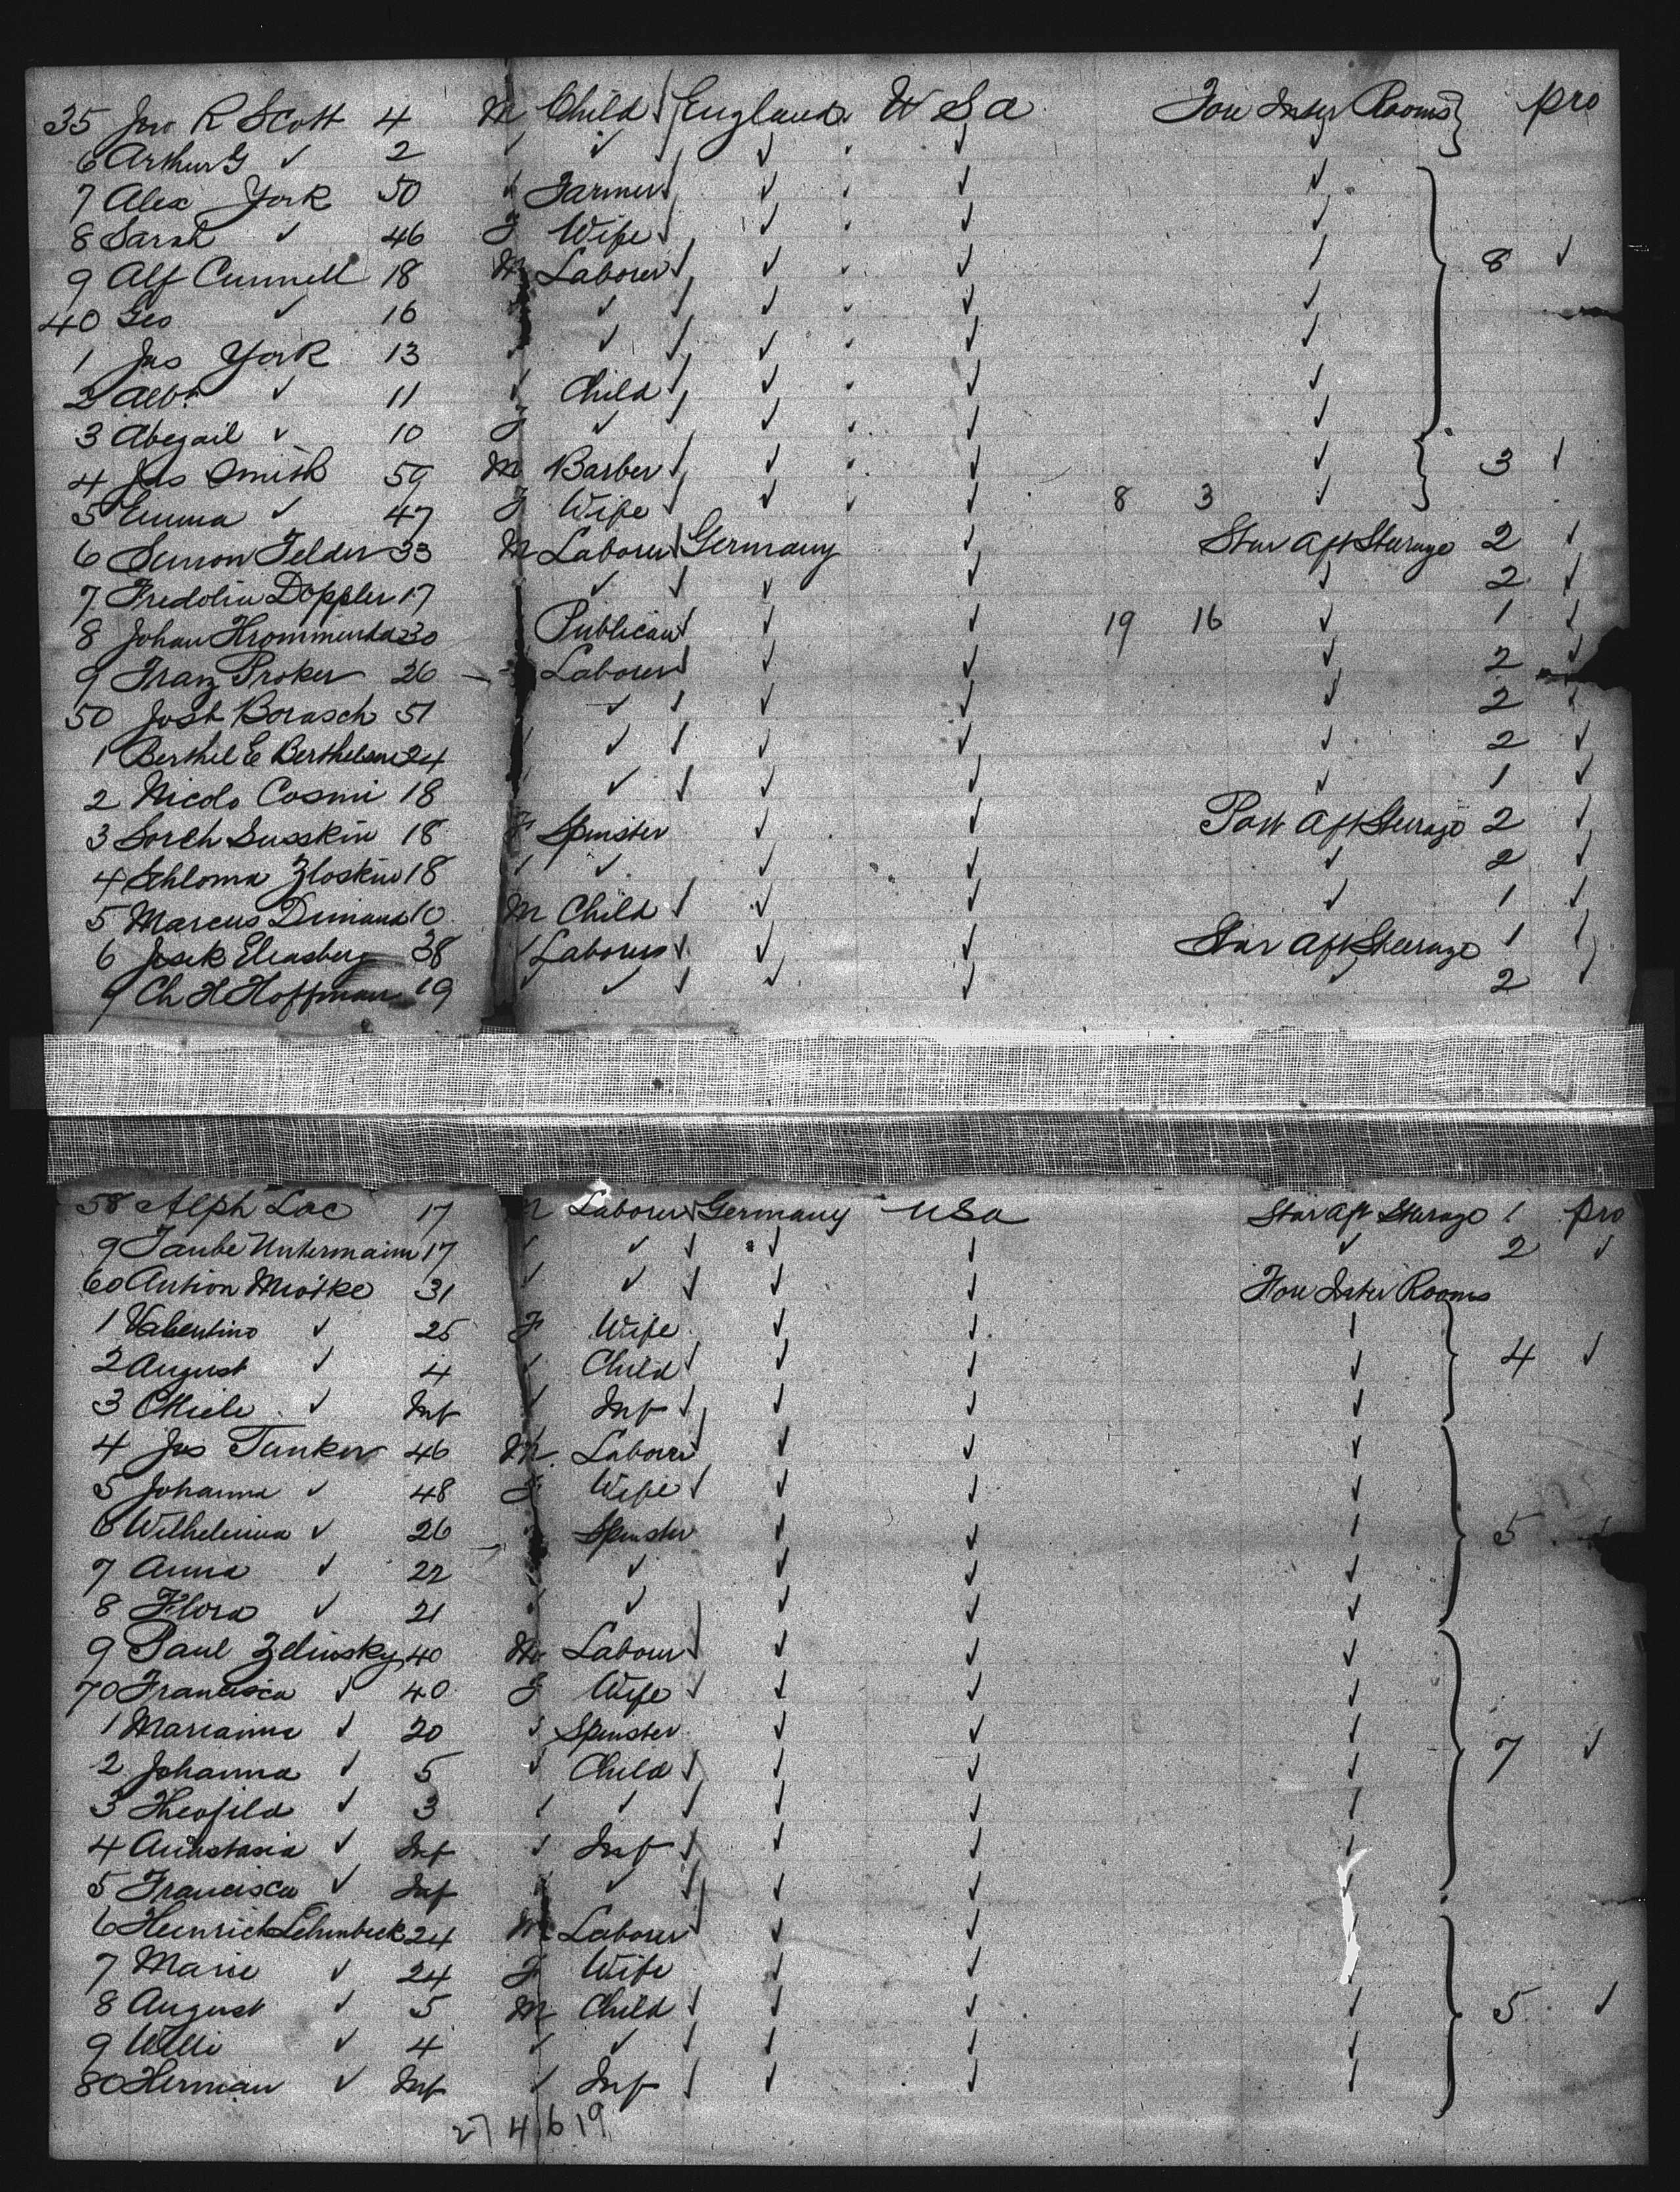 35 Jno R Scott 4 M Child England U S a Fore Inter Rooms pro
6 Arthur G ✓ 2 ✓ ✓ ✓ ✓ ✓
7 Alex York 50 ✓ Farmer ✓ ✓ ✓
8 Sarah ✓ 46 F Wife ✓ ✓ ✓ 8 ✓
9 Alf Cunnell 18 M Laborer ✓ ✓ ✓
40 Geo ✓ 16 ✓ ✓ ✓ ✓
1 Jas York 13 ✓ ✓ ✓ ✓ ✓
2 Albt ✓ 11 ✓ Child ✓ ✓ ✓
3 Abegail ✓ 10 F ✓ ✓ ✓ ✓
4 Jas Smith 59 M Barber ✓ ✓ ✓ 3 ✓
5 Emma ✓ 47 F Wife ✓ ✓ 8 3 ✓
6 Felder 33 M Laborer Germany ✓ Star aft Steerage 2 ✓
7 Fridolin Doppler 17 ✓ ✓ ✓ ✓ 2 ✓
8 Johan 30 Publican ✓ ✓ 19 16 ✓ 1 ✓
9 Franz Proker 26 Laborer ✓ ✓ ✓ 2 ✓
50 Jost Borasch 51 ✓ ✓ ✓ ✓ 2 ✓
1 Berthel E Berthelsen 24 ✓ ✓ ✓ ✓ ✓ 2 ✓
2 Nicolo Cosmi 18 ✓ ✓ ✓ ✓ ✓ 1 ✓
3 Sorch Susskin 18 F Spinster ✓ ✓ Port aft Steerage 2 ✓
4 Schloma Zloskin 18 ✓ ✓ ✓ ✓ ✓ 2 ✓
5 Marcus 10 M Child ✓ ✓ ✓ 1 ✓
6 Josek Eleasberg 38 ✓ Laborer ✓ ✓ Star aft Steerage 1 ✓
7 Ch H Hoffman 19 ✓ ✓ ✓ ✓ ✓ 2 ✓
58 Alph Loc 17 M Laborer Germany USa Star aft Steerage 1 pro
9 Taube Untermaim 17 ✓ ✓ ✓ ✓ ✓ 2 ✓
60 Antion Miotke 31 ✓ ✓ ✓ ✓ Fore Inter Rooms
1 Valentino ✓ 25 F Wife ✓ ✓ ✓
2 August ✓ 4 ✓ Child ✓ ✓ ✓ 4 ✓
3 Ottiele ✓ Inf ✓ Inf ✓ ✓ ✓
4 Jas Tunker 46 M Laborer ✓ ✓ ✓
5 Johanna ✓ 48 F Wife ✓ ✓ ✓
6 Wilhelmina ✓ 26 ✓ Spinster ✓ ✓ ✓ 5 ✓
7 Anna ✓ 22 ✓ ✓ ✓ ✓
8 Flora ✓ 21 ✓ ✓ ✓ ✓ ✓
9 Paul Zelinsky 40 M Labourer ✓ ✓ ✓
70 Francisca ✓ 40 F Wife ✓ ✓ ✓
1 Marianna ✓ 20 ✓ Spinster ✓ ✓ ✓
2 Johanna ✓ 5 ✓ Child ✓ ✓ ✓ 7 ✓
3 Theofila ✓ 3 ✓ ✓ ✓ ✓ ✓
4 Anastasia ✓ Inf ✓ Inf ✓ ✓ ✓
5 Francisca ✓ Inf ✓ ✓ ✓ ✓ ✓
6 Heinrich Lehmbeck 24 M Laborer ✓ ✓
7 Marie ✓ 24 F Wife ✓ ✓
8 August ✓ 5 M Child ✓ ✓ ✓ 5 ✓
9 Willi ✓ 4 ✓ ✓ ✓ ✓ ✓
80 Herman ✓ Inf ✓ Inf ✓ ✓ ✓
27 4 6 19